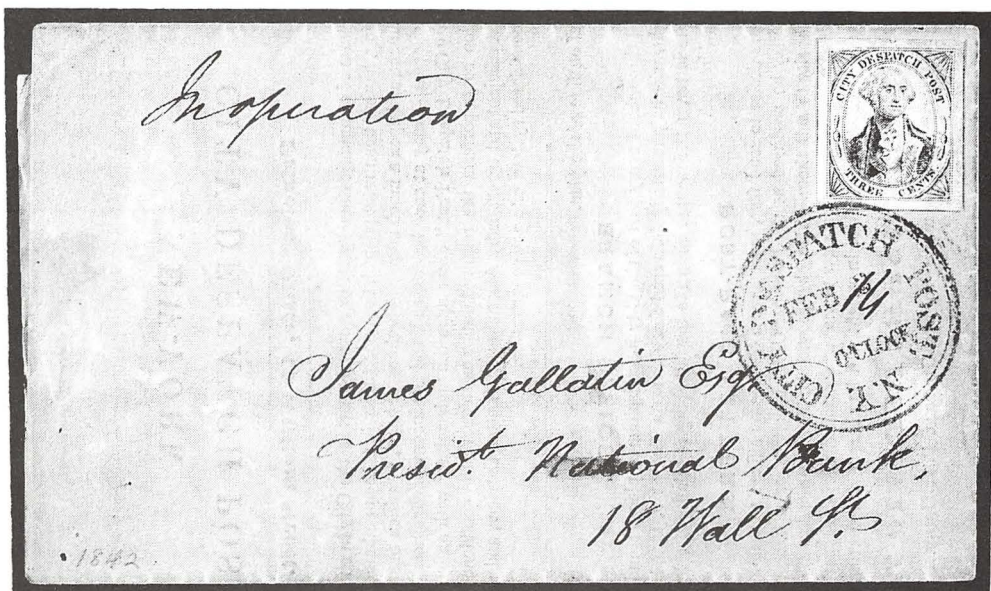 In operation
CITY DESPATCH POST
THREE CENTS
CITY DESPATCH POST N.Y.
FEB 14
O'CLOCK
James Gallatin Esqr
Presidt. National Bank,
18 Wall St
1842